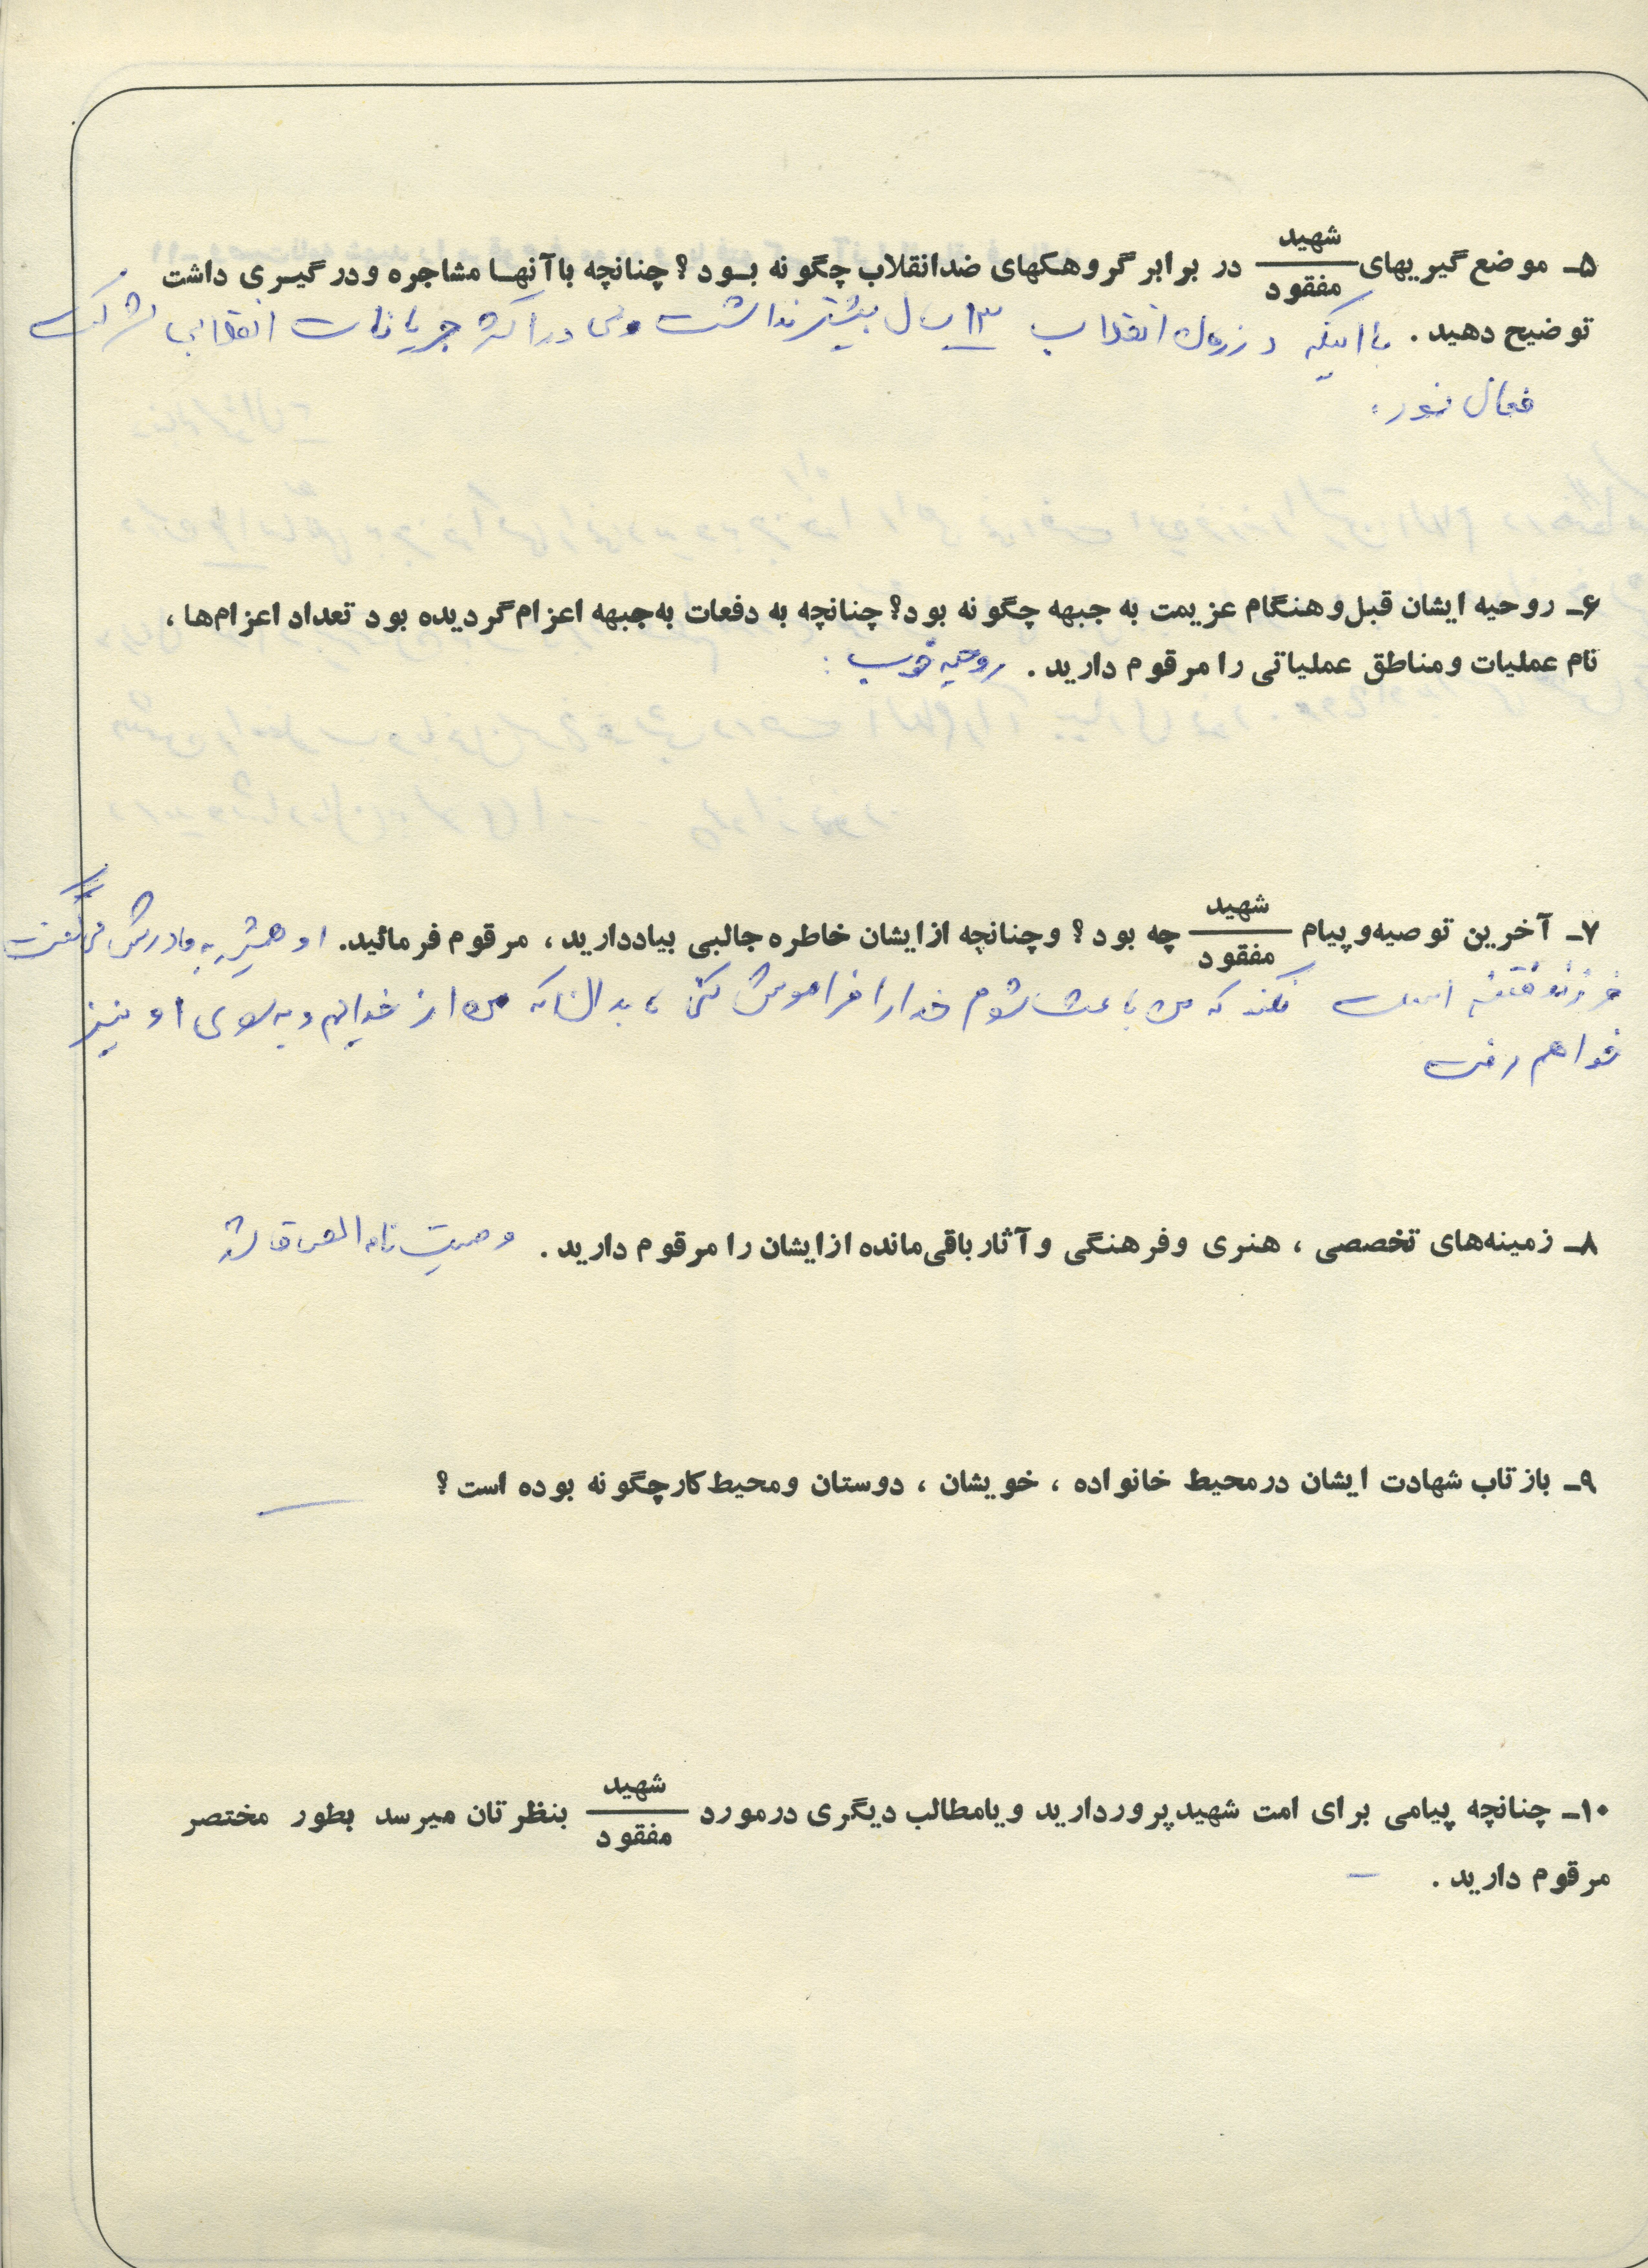 ۵ـ موضع گیریهای شهید / مفقود در برابر گروهکهای ضدانقلاب چگونه بود؟ چنانچه باآنها مشاجره ودرگیری داشت
توضیح دهید. با اینکه در زمان انقلاب ۱۳ سال بیشتر نداشت ولی در اکثر جریانات انقلابی شرکت
فعال نمود.
۶ـ روحیه ایشان قبل وهنگام عزیمت به جبهه چگونه بود؟ چنانچه به دفعات به جبهه اعزام گردیده بود تعداد اعزام‌ها،
نام عملیات ومناطق عملیاتی را مرقوم دارید. روحیه خوب
۷ـ آخرین توصیه وپیام شهید / مفقود چه بود؟ وچنانچه ازایشان خاطره جالبی بیاددارید، مرقوم فرمائید. او همیشه به مادرش می‌گفت
فرزند فتنه است نکند که من باعث شوم خدا را فراموش کنی، بدان که من از خدایم و به سوی او نیز
خواهم رفت
۸ـ زمینه‌های تخصصی، هنری وفرهنگی وآثار باقی‌مانده ازایشان را مرقوم دارید. وصیت نامه الصاق شد
۹ـ بازتاب شهادت ایشان درمحیط خانواده، خویشان، دوستان ومحیط کارچگونه بوده است؟ —
۱۰ـ چنانچه پیامی برای امت شهیدپروردارید ویامطالب دیگری درمورد شهید / مفقود بنظرتان میرسد بطور مختصر
مرقوم دارید. —